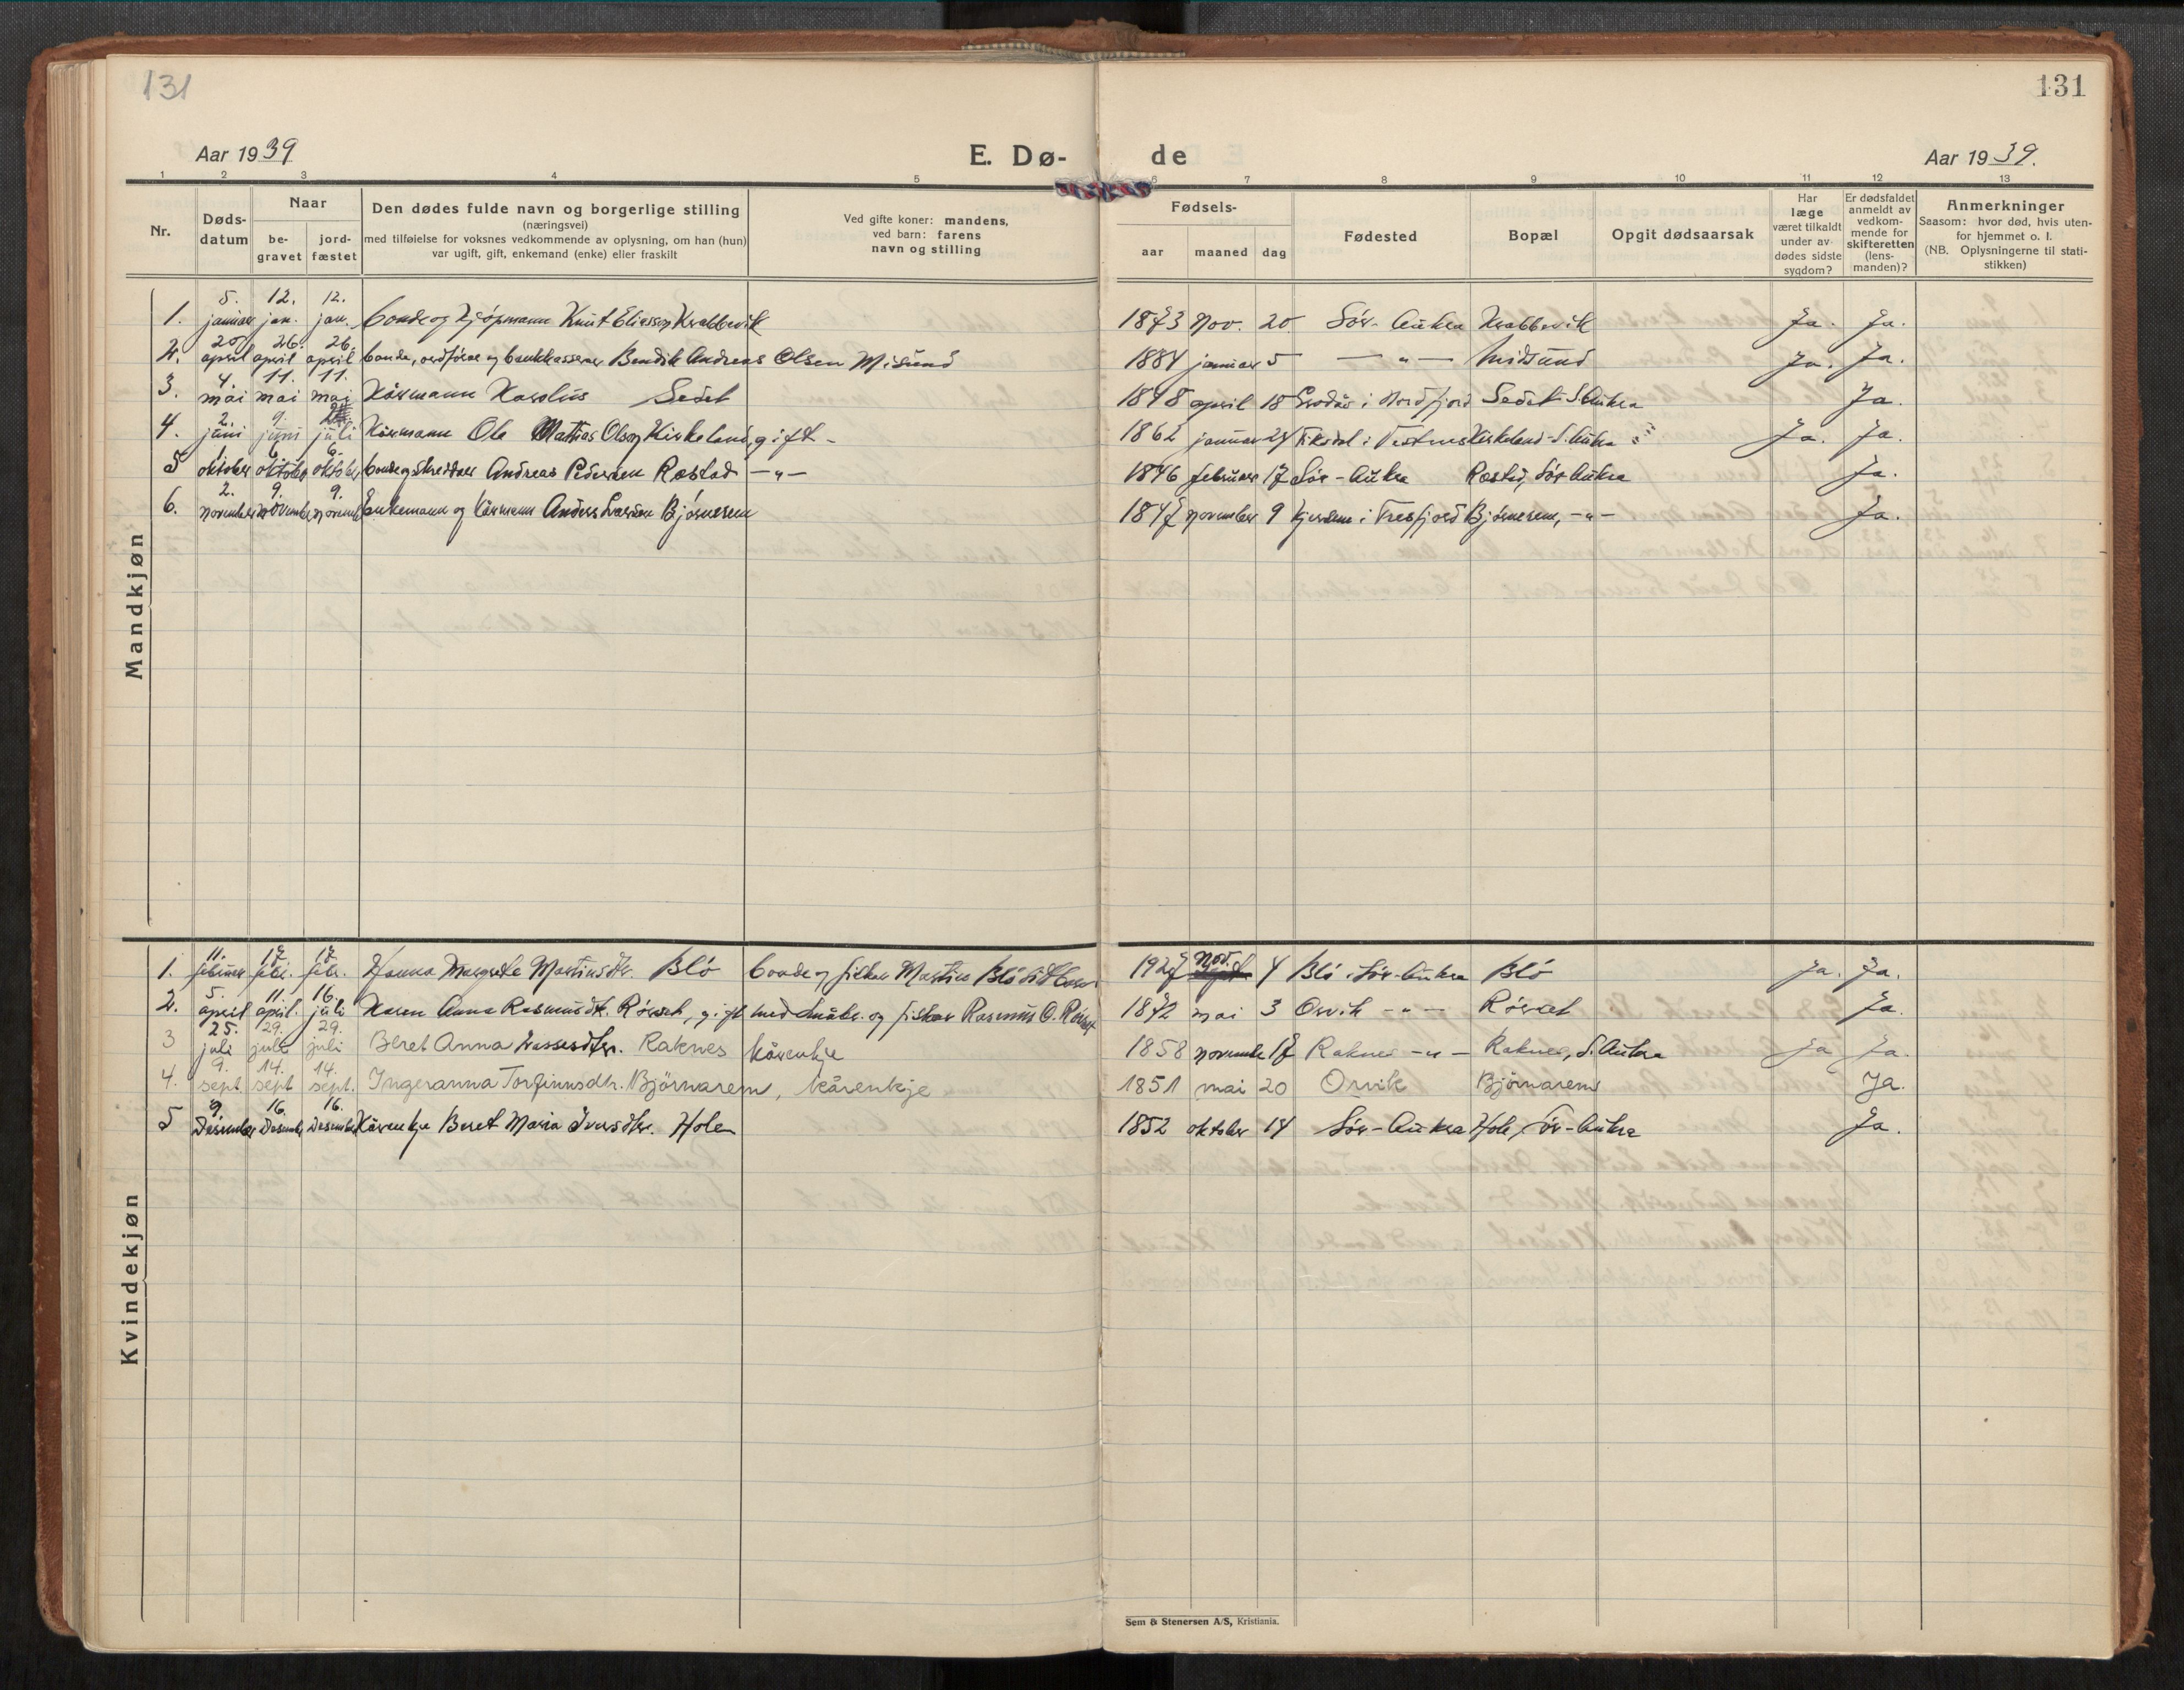 131
131
Aar 1939
E. Dø-
de
Aar 1939.
1 2 3 4 5 6 7 8 9 10 11 12 13
Nr.
Døds-
datum
Naar
be-
gravet
jord-
fæstet
Den dødes fulde navn og borgerlige stilling
(næringsvei)
med tilføielse for voksnes vedkommende av oplysning, om han (hun)
var ugift, gift, enkemand (enke) eller fraskilt
Ved gifte koner: mandens,
ved barn: farens
navn og stilling
Fødsels-
aar maaned dag
Fødested
Bopæl
Opgit dødsaarsak
Har
læge
været tilkaldt
under av-
dødes sidste
sygdom?
Er dødsfaldet
anmeldt av
vedkom-
mende for
skifteretten
(lens-
manden)?
Anmerkninger
Saasom: hvor død, hvis uten-
for hjemmet o. l.
(NB. Oplysningerne til stati-
stikken)
Mandkjøn
1. 5. januar 12. jan. 12. jan. bonde og kjøpmann Knut Eliassen Krabbevik 1873 Nov. 20 Sør-Aukra Krabbevik Ja. Ja.
2. 20. april 26. april 26. april bonde, ordfører og bankkasserer Bendik Andreas Olsen Misund 1884 januar 5 — " — Midsund Ja. Ja.
3. 4. mai 11. mai 11. mai Kårmann Karolus Sedet 1848 april 18 i Nordfjord Sedet S. Aukra Ja.
4. 2. juni 9. juni juli Kårmann Ole Mathias Olsen Kirkeland, gift - 1862 januar 24 Fiksdal i Vestnes Kirkeland - S. Aukra Ja. Ja.
5 1. oktober 6. oktober 6. oktober bonde og skredder Andreas Pedersen Rostad — " — 1846 februar 17 Sør-Aukra Rostad, Sør Aukra Ja.
6. 2. november 9. november 9. november Enkemann og kårmann Anders Larsen Bjørnerem 1847 november 9 i Tresfjord Bjørnerem, — " — Ja.
Kvindekjøn
1. 11. februar 17. febr. 17. febr. Hanna Margrete Martinsdtr. Blø bonde og fisker Martin Blø 1927 Nov. 4 Blø i Sør-Aukra Blø Ja. Ja.
2. 5. april 11. april. 16. juli Karen Anna Rasmusdtr. Rørset, gift med småbr. og fisker Rasmus O. Rørset 1872 mai 3 Orvik — " — Rørset Ja.
3 25. juli 29. juli 29. juli Beret Anna Lassesdtr. Raknes kårenkje 1858 november 17 Raknes — " — Raknes, S. Aukra Ja Ja.
4. 9. sept. 14. sept 14. sept. Ingeranna Torfinnsdtr. Björnarem, kårenkje 1851 mai 20 Orvik Björnarem Ja.
5 9. Desember 16. Desember 16. Desember Kårenkje Beret Maria Iversdtr. Holen 1852 oktober 14 Sør-Aukra Hole, Sør-Aukra Ja.
Sem & Stenersen A/S, Kristiania.